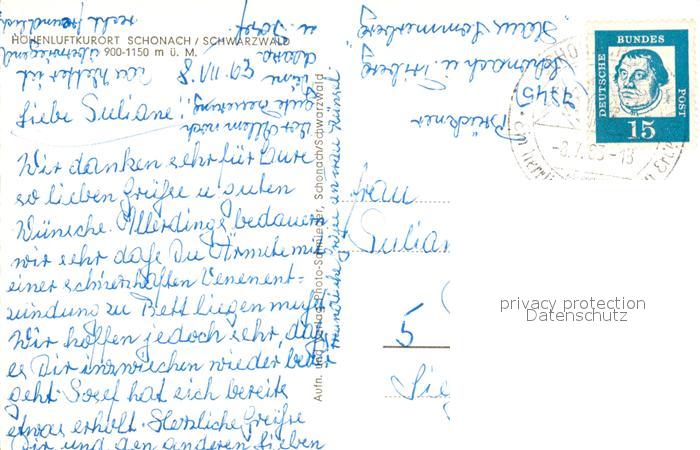 HÖHENLUFTKURORT SCHONACH / SCHWARZWALD
900-1150 m ü. M.
Liebe Juliane!
Wir danken sehr für Deine
so lieben Grüße u guten
Wünsche. Allerdings bedauern
wir sehr daß Du Ärmste mit
einer schmerzhaften Venenent-
zündung zu Bett liegen mußt.
Wir hoffen jedoch sehr, daß
es Dir inzwischen wieder besser
geht. Josef hat sich bereits
etwas erholt. Herzliche Grüße
Dir und den anderen Lieben
u Josef
Das Wetter ist
überwiegend
recht freundlich
Aufn. und Verlag Photo-Schmieder, Schonach/Schwarzwald
Brückner
7745
Schonach ü. Triberg
Haus Sommerberg
DEUTSCHE BUNDES POST
15
Frau
Julian
5
Sie
privacy protection
Datenschutz